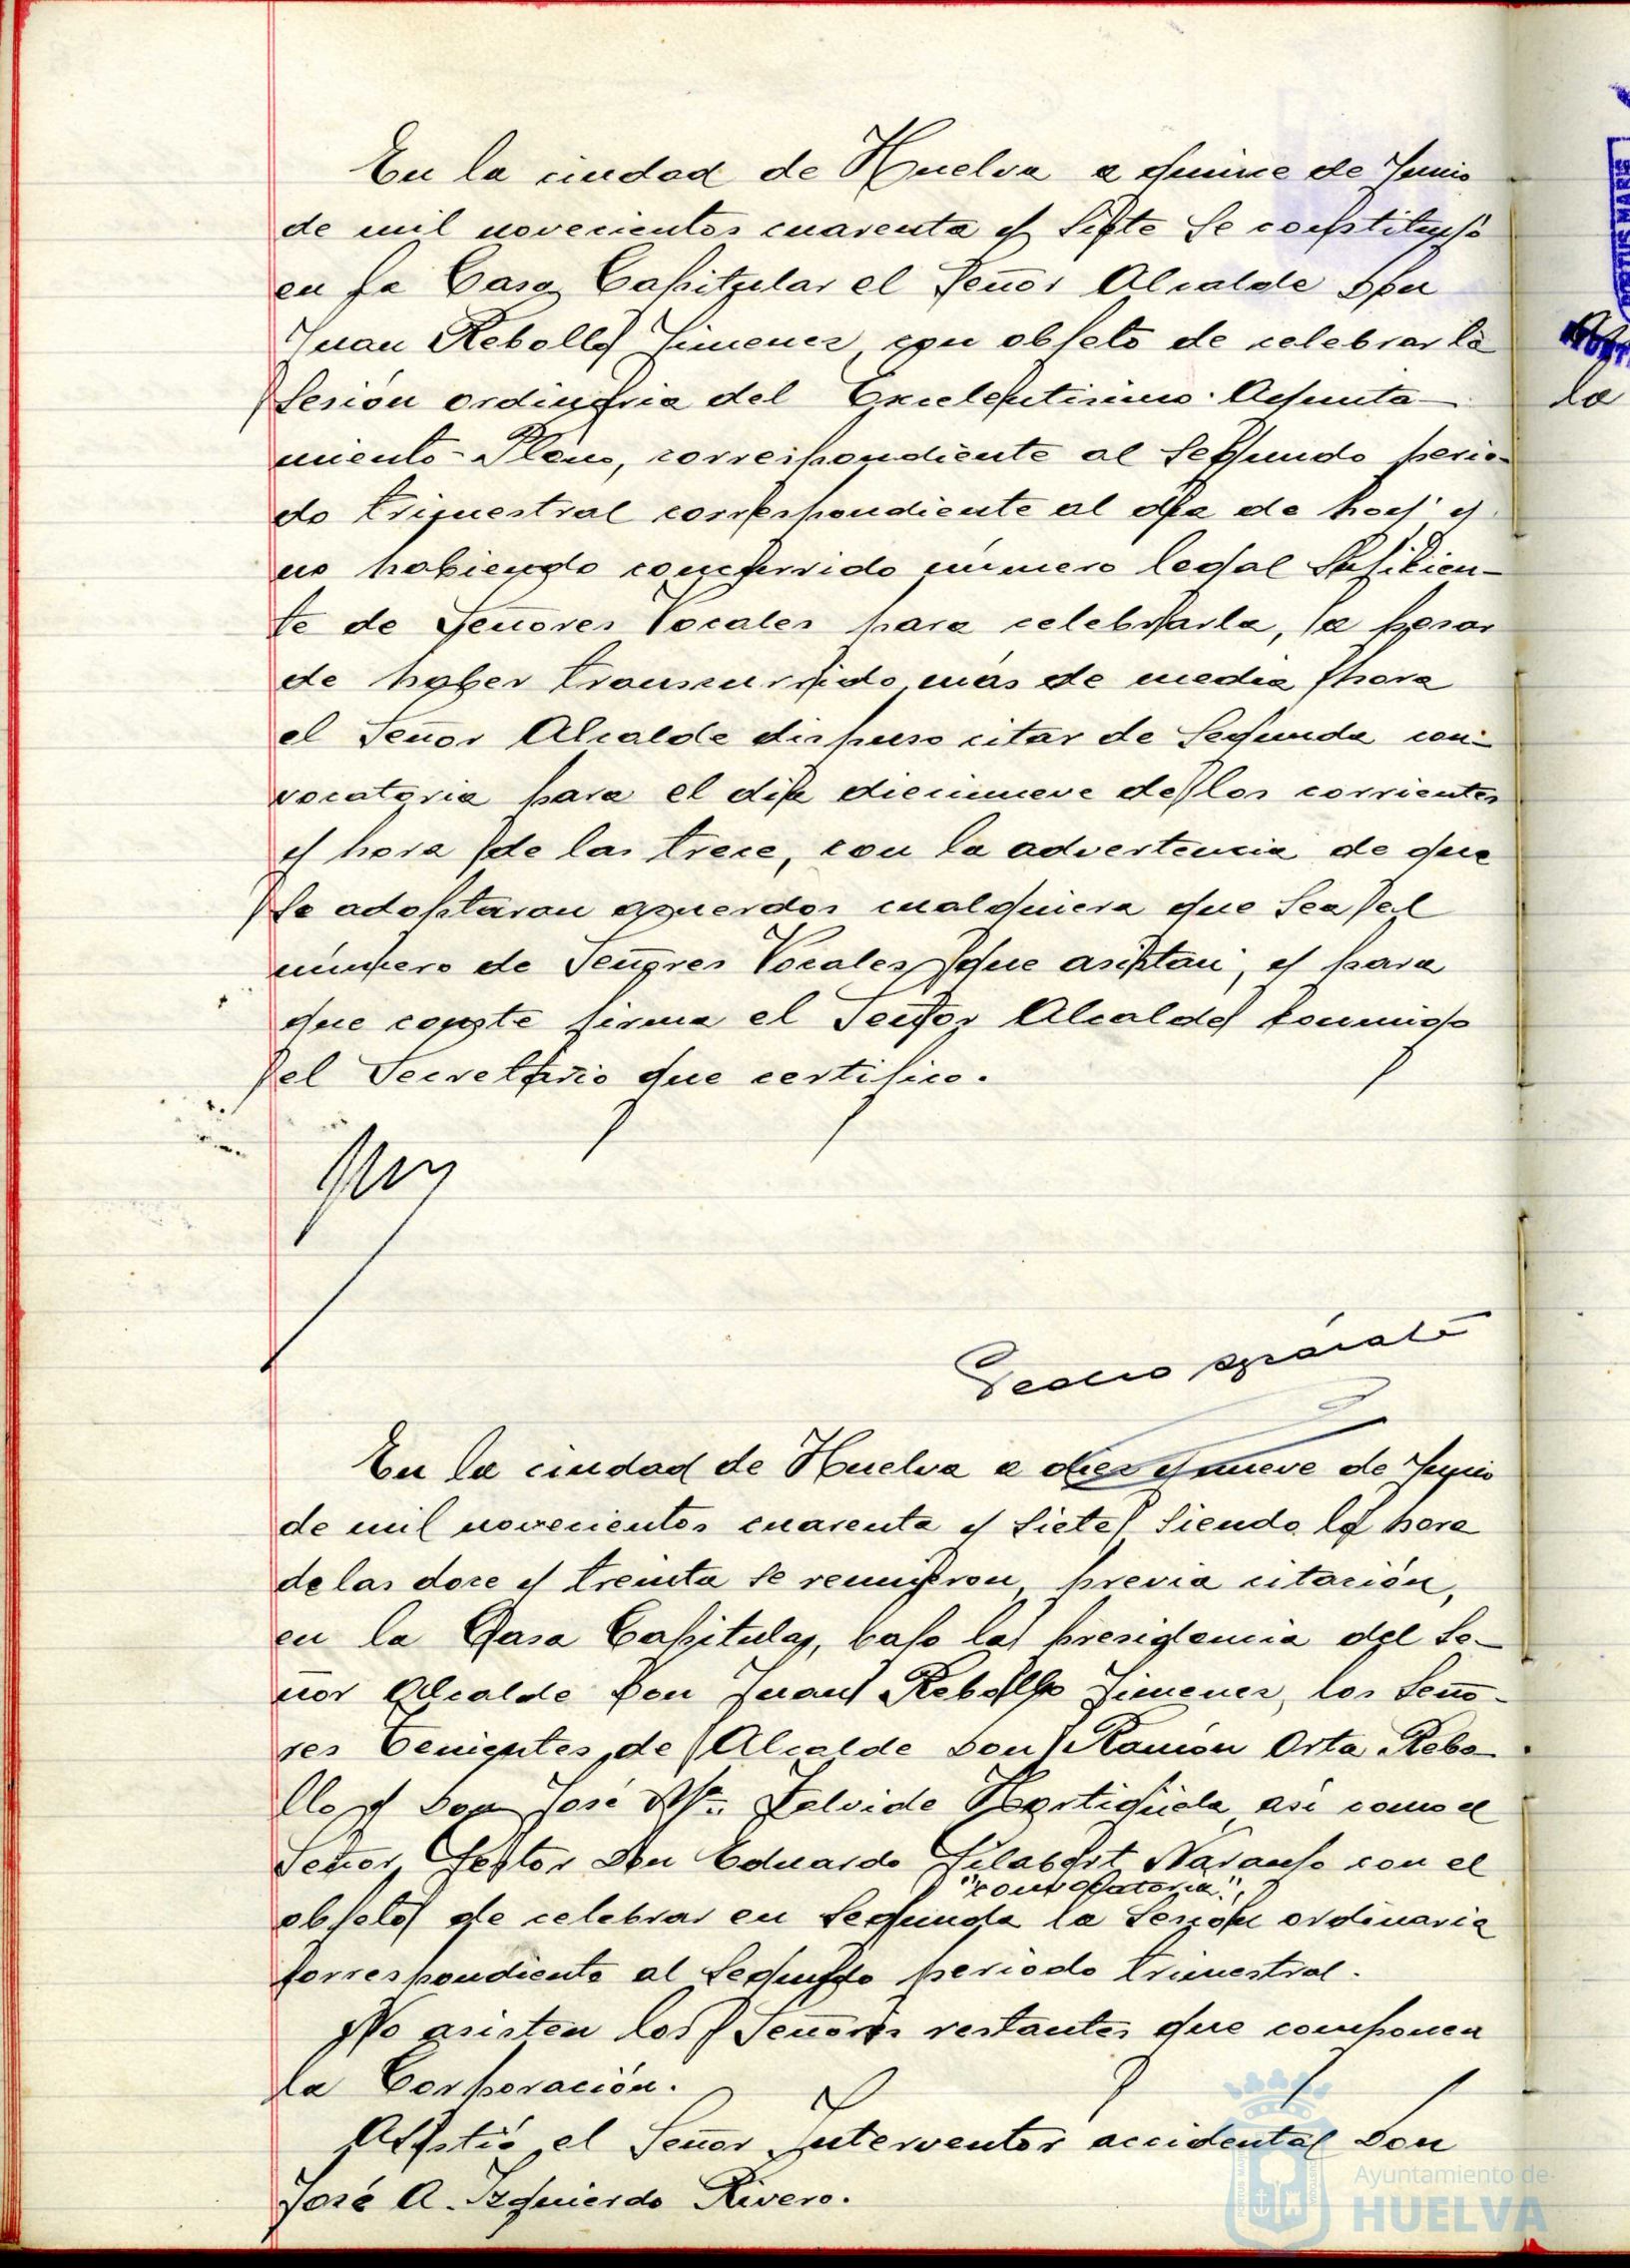 En la ciudad de Huelva a quince de Junio
de mil novecientos cuarenta y siete se constituyó
en la Casa Capitular el Señor Alcalde Don
Juan Rebollo Jimenez, con objeto de celebrar la
sesión ordinaria del Excelentisimo Ayunta-
miento-Pleno, correspondiente al segundo perio-
do trimestral correspondiente al dia de hoy y
no habiendo concurrido número legal suficien-
te de Señores Vocales para celebrarla, a pesar
de haber transcurrido más de media hora
el Señor Alcalde dispuso citar de segunda con-
vocatoria para el dia diecinueve de los corrientes
y hora de las trece, con la advertencia de que
se adoptaran acuerdos cualquiera que sea el
número de Señores Vocales que asistan, y para
que conste firma el Señor Alcalde conmigo
el Secretario que certifico.
Pedro
En la ciudad de Huelva a diez y nueve de Junio
de mil novecientos cuarenta y siete siendo la hora
de las doce y treinta se reunieron, previa citación,
en la Casa Capitular, bajo la presidencia del Se-
ñor Alcalde Don Juan Rebollo Jimenez, los Seño-
res Tenientes de Alcalde Don Ramón Orta Rebo-
llo y Don José Mª. Zalvide Hortigüela así como el
Señor Gestor Don Eduardo Gilabert Naranjo con el
"convocatoria",
objeto de celebrar en segunda la sesión ordinaria
correspondiente al segundo periodo trimestral.
No asisten los Señores restantes que componen
la Corporación.
Asistió el Señor Interventor accidental Don
José A. Izquierdo Rivero.
la
Ayuntamiento de
HUELVA